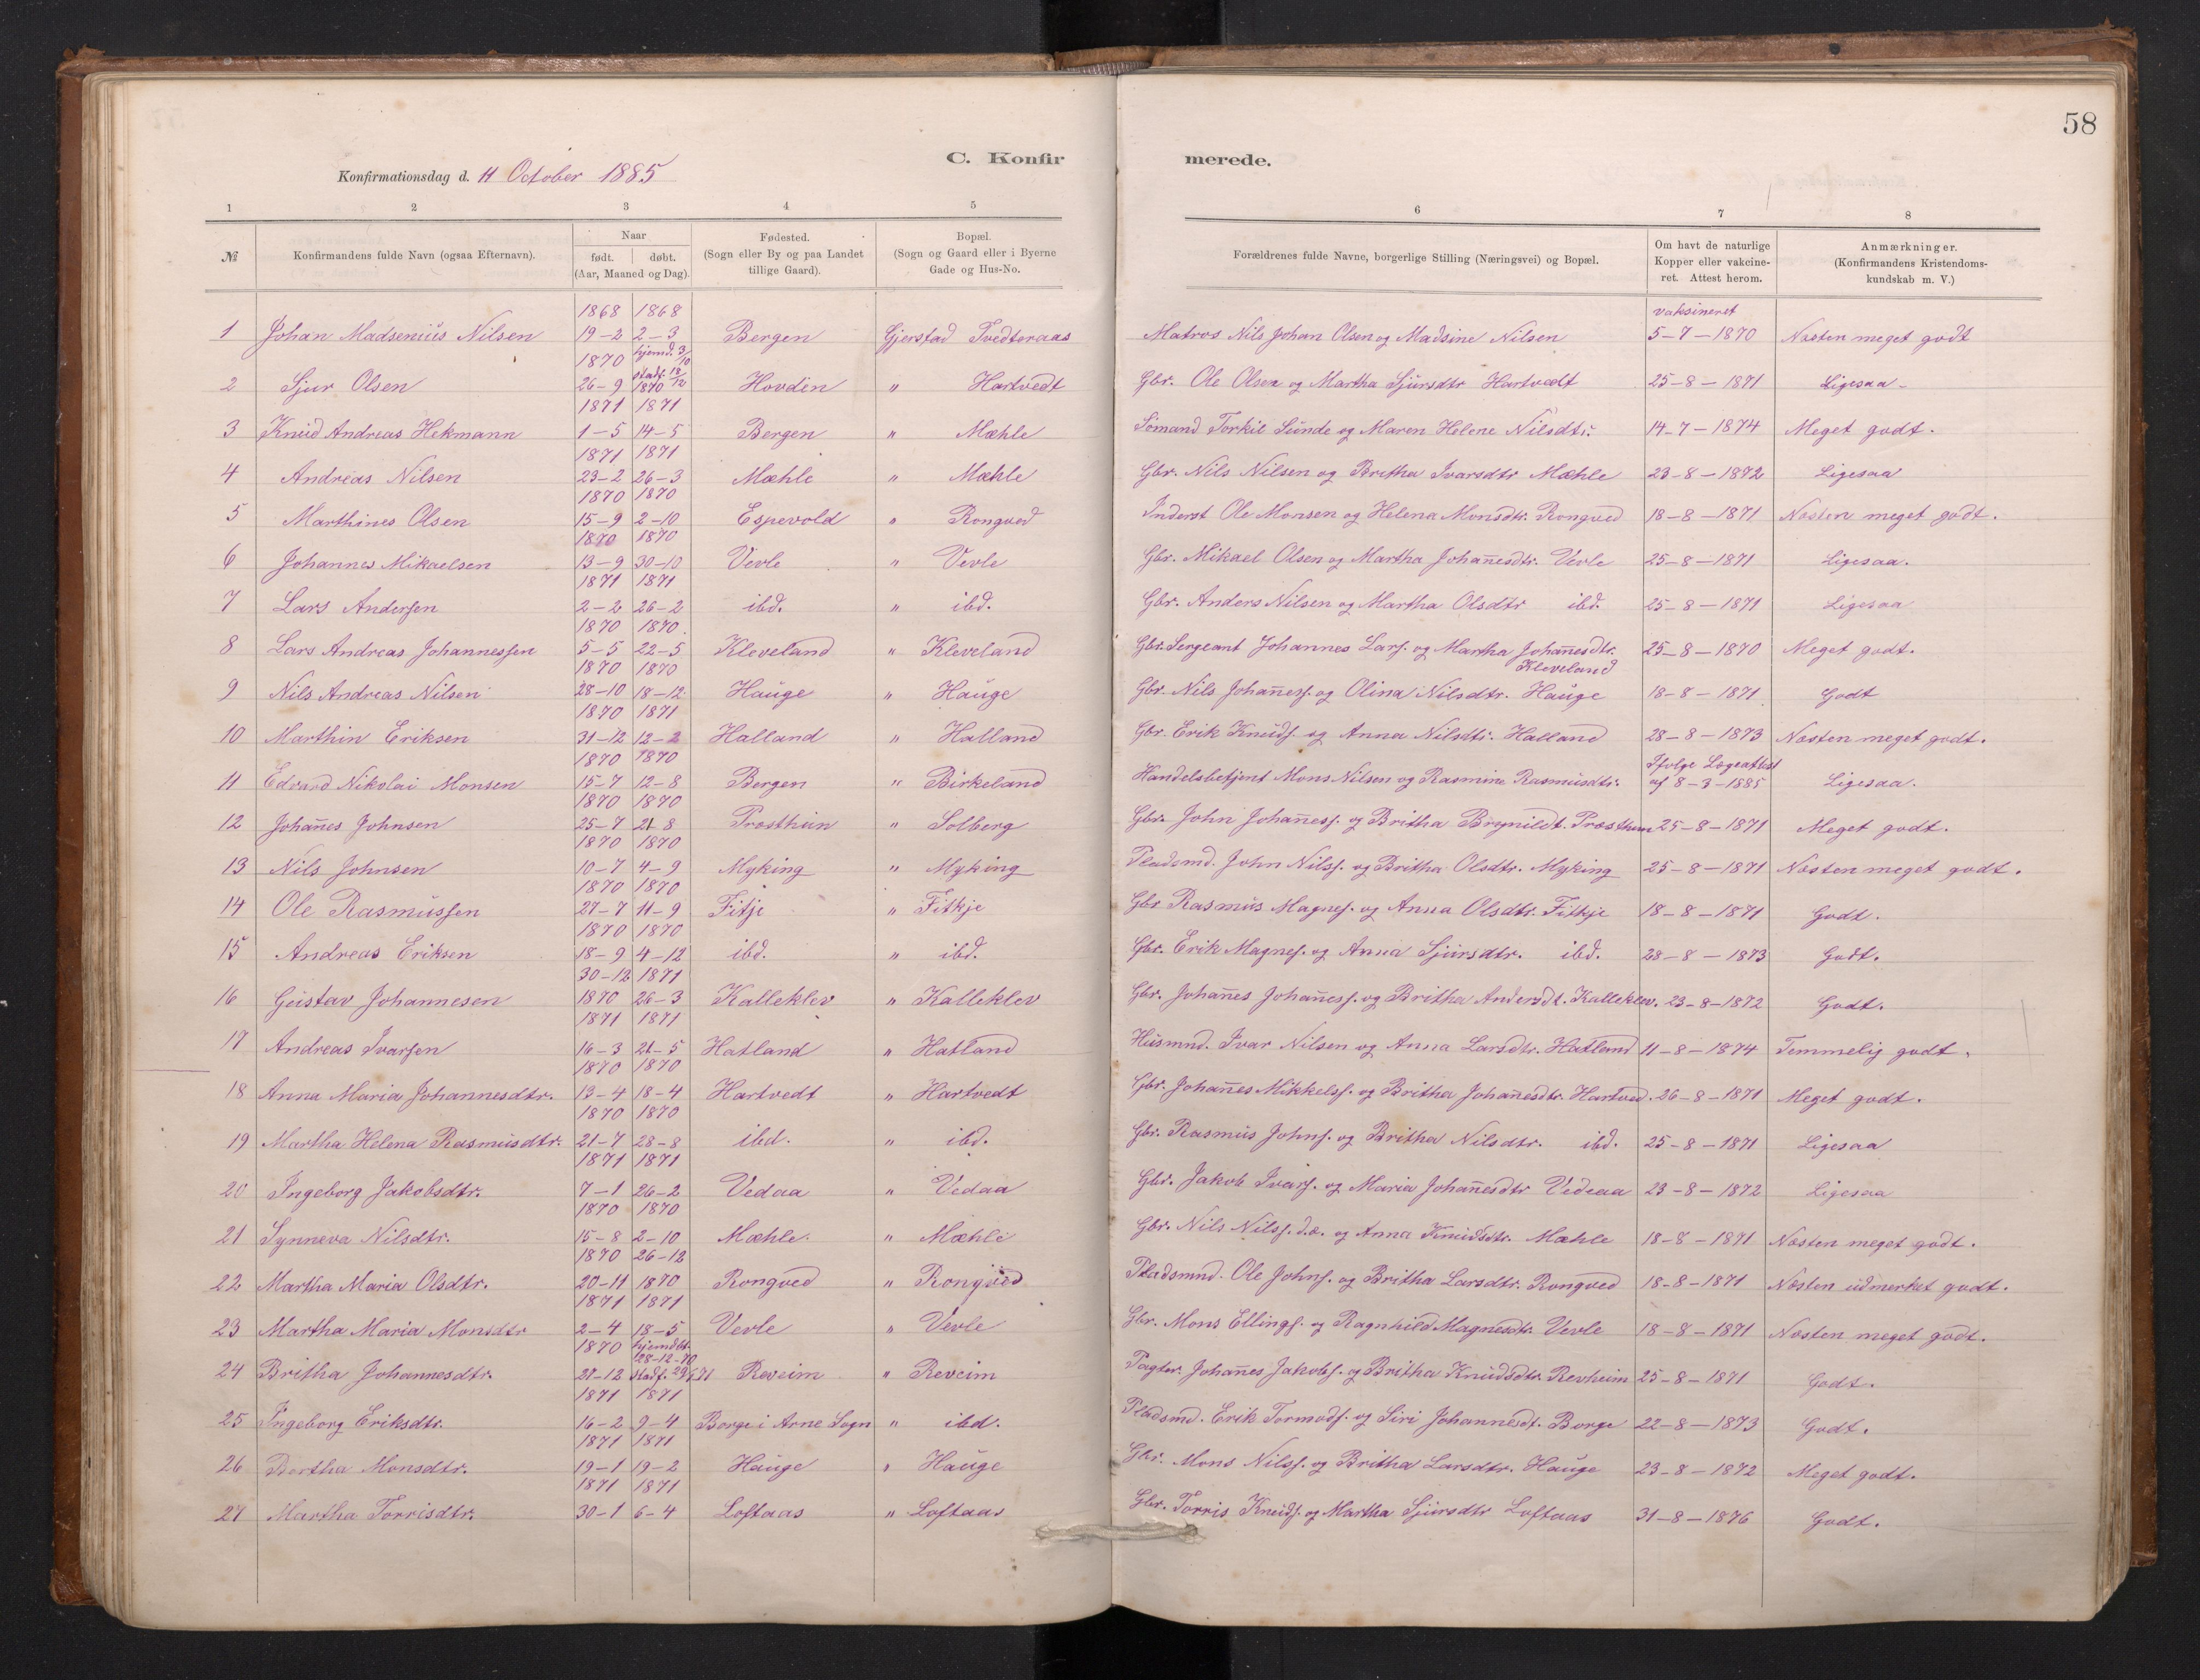 58
C. Konfirmerede.
Konfirmationsdag d. 11 October 1885
1 2 3 4 5 6 7 8
№ Konfirmandens fulde Navn (ogsaa Efternavn). Naar født. døbt. (Aar, Maaned og Dag). Fødested. (Sogn eller By og paa Landet tillige Gaard). Bopæl. (Sogn og Gaard eller i Byerne Gade og Hus-No. Forældrenes fulde Navne, borgerlige Stilling (Næringsvei) og Bopæl. Om havt de naturlige Kopper eller vakcineret. Attest herom. Anmærkninger. (Konfirmandens Kristendomskundskab m. V.)
1868 1868 vaksineret
1 Johan Madsenius Nilsen 19-2 2-3 Bergen Gjerstad Tvedteraas Matros Nils Johan Olsen og Madsine Nilsen 5-7-1870 Næsten meget godt
1870 hjemd. 3/10 stadf. 18/12
2 Sjur Olsen 26-9 1870 Hovden " Hartvedt Gbr. Ole Olsen og Martha Sjursdtr Hartvedt 25-8-1871 Ligesaa
1871 1871
3 Knud Andreas Hekmann 1-5 14-5 Bergen " Mæhle Sømand Torkil Sunde og Maren Helene Nilsdtr. 14-7-1874 Meget godt.
1871 1871
4 Andreas Nilsen 23-2 26-3 Mæhle " Mæhle Gbr. Nils Nilsen og Britha Ivarsdtr Mæhle 23-8-1872 Ligesaa
1870 1870
5 Marthines Olsen 15-9 2-10 Espevold " Rongved Inderst Ole Monsen og Helena Monsdtr. Rongved 18-8-1871 Næsten meget godt.
1870 1870
6 Johannes Mikaelsen 13-9 30-10 Vevle " Vevle Gbr. Mikael Olsen og Martha Johan̄esdtr. Vevle 25-8-1871 Ligesaa.
1871 1871
7 Lars Andersen 2-2 26-2 ibd. " ibd. Gbr. Anders Nilsen og Martha Olsdtr ibd. 25-8-1871 Ligesaa
1870 1870.
8 Lars Andreas Johannessen 5-5 22-5 Kleveland " Kleveland Gbr. Sergeant Johannes Lars. og Martha Johan̄esdtr. Kleveland 25-8-1870 Meget godt.
1870 1870
9 Nils Andreas Nilsen 28-10 18-12 Hauge " Hauge Gbr. Nils Johan̄es. og Olina Nilsdtr. Hauge 18-8-1871 Godt
1870 1871
10 Marthin Eriksen 31-12 12-2 Halland " Halland Gbr. Erik Knuds. og Anna Nilsdtr. Halland 28-8-1873 Næsten meget godt.
1870 1870
11 Edvard Nikolai Monsen 15-7 12-8 Bergen " Birkeland Handelsbetjent Mons Nilsen og Rasmine Rasmusdtr. Ifølge Lægeattest af 8-3-1885 Ligesaa.
1870 1870
12 Johan̄es Johnsen 25-7 21-8 Prosthun " Solberg Gbr. John Johan̄ess. og Britha Brynildt. Prosthun 25-8-1871 Meget godt.
1870 1870
13 Nils Johnsen 10-7 4-9 Myking " Myking Pladsmd. John Nilss. og Britha Olsdtr. Myking 25-8-1871 Næsten meget godt.
1870 1870
14 Ole Rasmussen 27-7 11-9 Fitje " Fitkje Gbr Rasmus Magnes. og Anna Olsdtr. Fitkje 18-8-1871 Godt.
1870 1870
15 Andreas Eriksen 18-9 4-12 ibd. " ibd. Gbr. Erik Magnes. og Anna Sjursdtr. ibd. 28-8-1873 Godt.
30-12 1871
16 Gustav Johannesen 1870 26-3 Kalleklev " Kalleklev Gbr. Johan̄es Johan̄ess. og Britha Andersdt. Kalleklev. 23-8-1872 Godt.
1871 1871
17 Andreas Ivarsen 16-3 21-5 Hatland " Hatland Husmnd. Ivar Nilsen og Anna Larsdtr. Hatland 11-8-1874 Temmelig godt.
1870 1870
18 Anna Maria Johannesdtr. 13-4 18-4 Hartvedt " Hartvedt Gbr. Johan̄es Mikkelss. og Britha Johan̄esdtr. Hartved. 26-8-1871 Meget godt.
1870 1870
19 Martha Helena Rasmusdtr. 21-7 28-8 ibd. " ibd. Gbr. Rasmus Johns. og Britha Nilsdtr. ibd. 25-8-1871 Ligesaa
1871 1871
20 Ingeborg Jakobsdtr. 7-1 26-2 Vedaa " Vedaa Gbr. Jakob Ivars. og Maria Johan̄esdtr Vedeaa 23-8-1872 Ligesaa
1870 1870
21 Synneva Nilsdtr. 15-8 2-10 Mæhle. " Mæhle Gbr. Nils Nilss. d.æ. og Anna Knudsdtr. Mæhle 18-8-1871 Næsten meget godt.
1870 26-12
22 Martha Maria Olsdtr. 20-11 1870 Rongved " Rongved Pladsmnd. Ole Johns. og Britha Larsdtr. Rongved 18-8-1871 Næsten udmerket godt.
1871 1871
23 Martha Maria Monsdtr 2-4 18-5 Vevle " Vevle Gbr. Mons Ellings. og Ragnhild Magnesdtr. Vevle 18-8-1871 Næsten meget godt.
1870 hjemdt. 28-12-70
24 Britha Johannesdtr. 27-12 stadf. Reveim " Reveim Pagter. Johan̄es Jakobs. og Britha Knudsdtr. Revheim 25-8-1871 Godt.
1871 1871
25 Ingeborg Eriksdtr. 16-2 9-4 Borge i Arne Sogn " ibd. Pladsmd. Erik Tormods. og Siri Johannesdt. Borge 22-8-1873 Godt.
1871 1871
26 Bertha Monsdtr. 19-1 19-2 Hauge " Hauge Gbr. Mons Nilss. og Britha Larsdtr. Hauge 23-8-1872 Meget godt.
1871 1871
27 Martha Torrisdtr. 30-1 6-4 Loftaas " Loftaas Gbr. Torris Knuds. og Martha Sjursdtr Loftaas 31-8-1876 Godt.